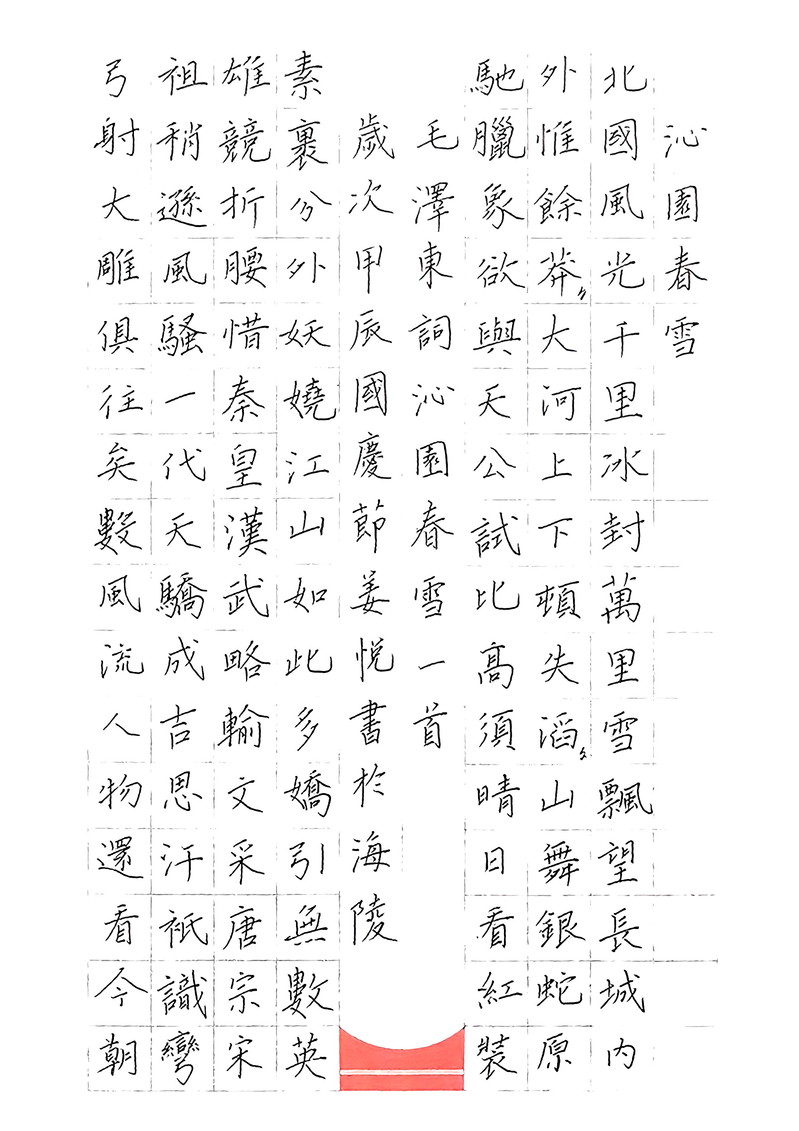 沁園春雪
北國風光千里冰封萬里雪飄望長城內
外惟餘莽々大河上下頓失滔々山舞銀蛇原
馳臘象欲與天公試比高須晴日看紅裝
毛澤東詞沁園春雪一首
歲次甲辰國慶節姜悅書於海陵
素裹分外妖嬈江山如此多嬌引無數英
雄競折腰惜秦皇漢武略輸文采唐宗宋
祖稍遜風騷一代天驕成吉思汗祇識彎
弓射大雕俱往矣數風流人物還看今朝